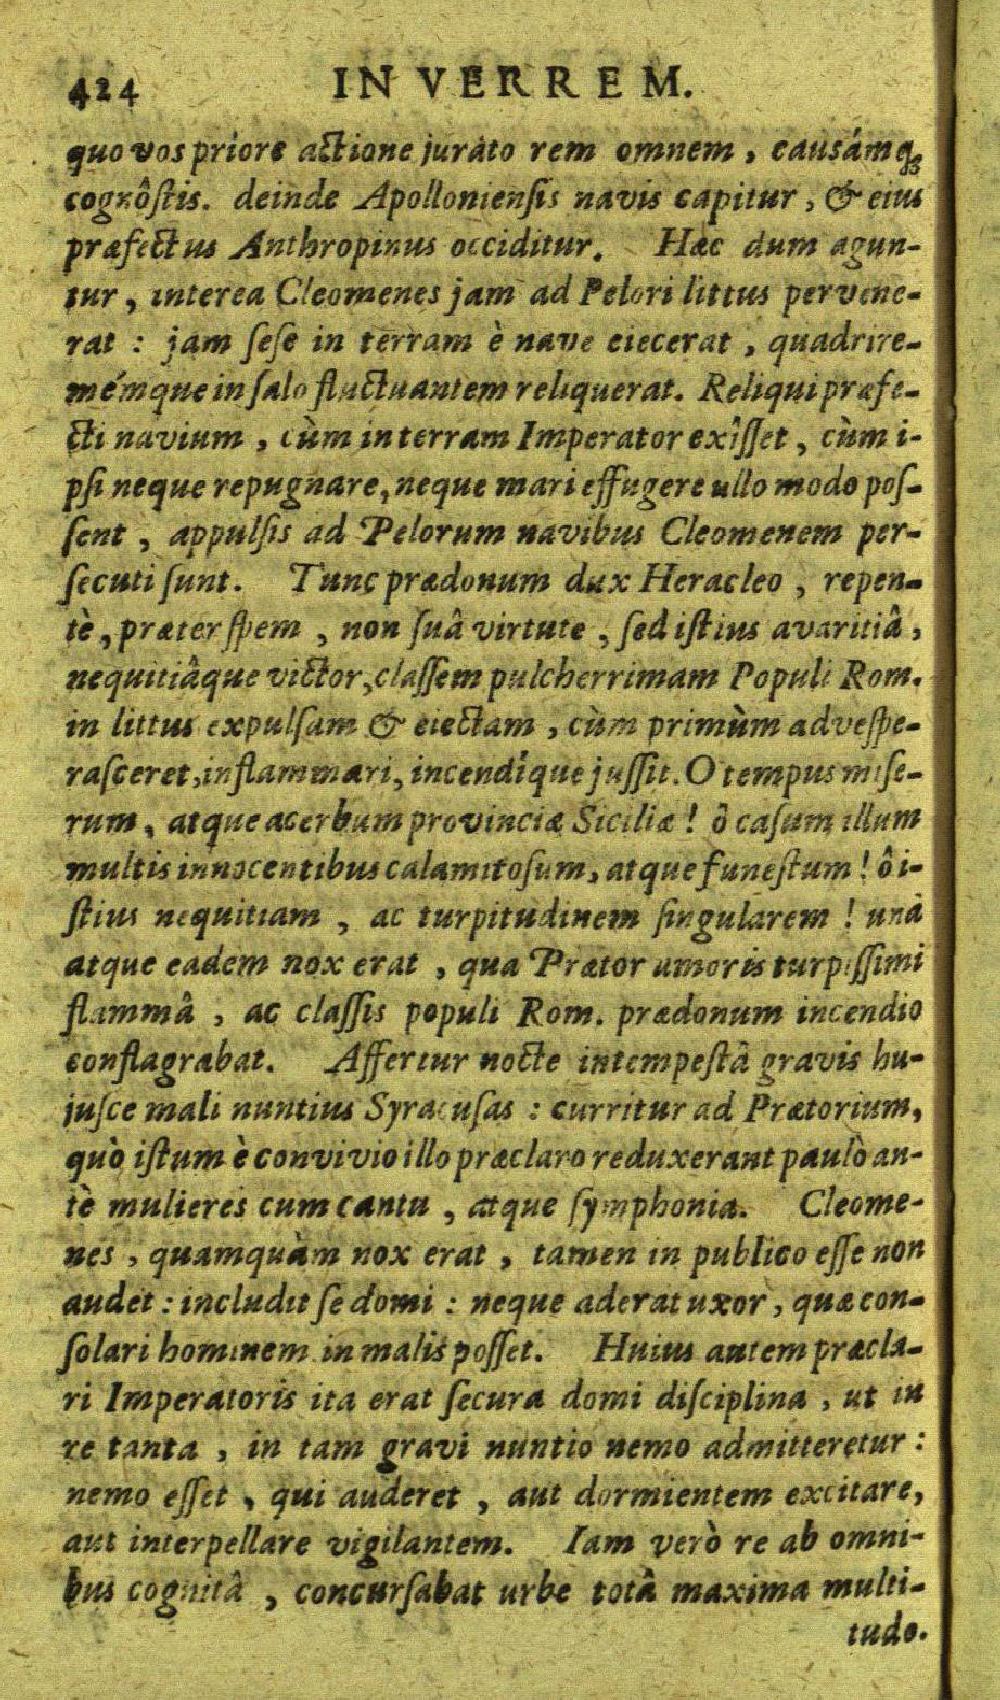 424 IN VERREM.
quo vos priore actione jurato rem omnem, causámq;
cognôstis. deinde Apolloniensis navis capitur, & eius
præfectus Anthropinus occiditur. Hæc dum agun-
tur, interea Cleomenes jam ad Pelori littus pervene-
rat : jam sese in terram è nave eiecerat, quadrire-
mémque in salo fluctuantem reliquerat. Reliqui præfe-
cti navium, cùm in terram Imperator exîsset, cùm i-
psi neque repugnare, neque mari effugere ullo modo pos-
sent, appulsis ad Pelorum navibus Cleomenem per-
secuti sunt. Tunc prædonum dux Heracleo, repen-
tè, præter spem, non suâ virtute, sed istius avaritiâ,
nequitiâque victor, classem pulcherrimam Populi Rom.
in littus expulsam & eiectam, cùm primùm advespe-
rasceret, inflammari, incendíque jussit. O tempus mise-
rum, atque acerbum provinciæ Siciliæ! ô casum illum
multis innocentibus calamitosum, atque funestum! ô i-
stius nequitiam, ac turpitudinem singularem! unâ
atque eadem nox erat, qua Prætor amoris turpissimi
flammâ, ac classis populi Rom. prædonum incendio
conflagrabat. Affertur nocte intempestâ gravis hu-
jusce mali nuntius Syracusas : curritur ad Prætorium,
quò istum è convivio illo præclaro reduxerant paulò an-
tè mulieres cum cantu, atque symphonia. Cleome-
nes, quamquàm nox erat, tamen in publico esse non
audet : includit se domi : neque aderat uxor, quæ con-
solari hominem in malis posset. Huius autem præcla-
ri Imperatoris ita erat secura domi disciplina, ut in
re tanta, in tam gravi nuntio nemo admitteretur :
nemo esset, qui auderet, aut dormientem excitare,
aut interpellare vigilantem. Iam verò re ab omni-
bus cognitâ, concursabat urbe totâ maxima multi-
tudo.